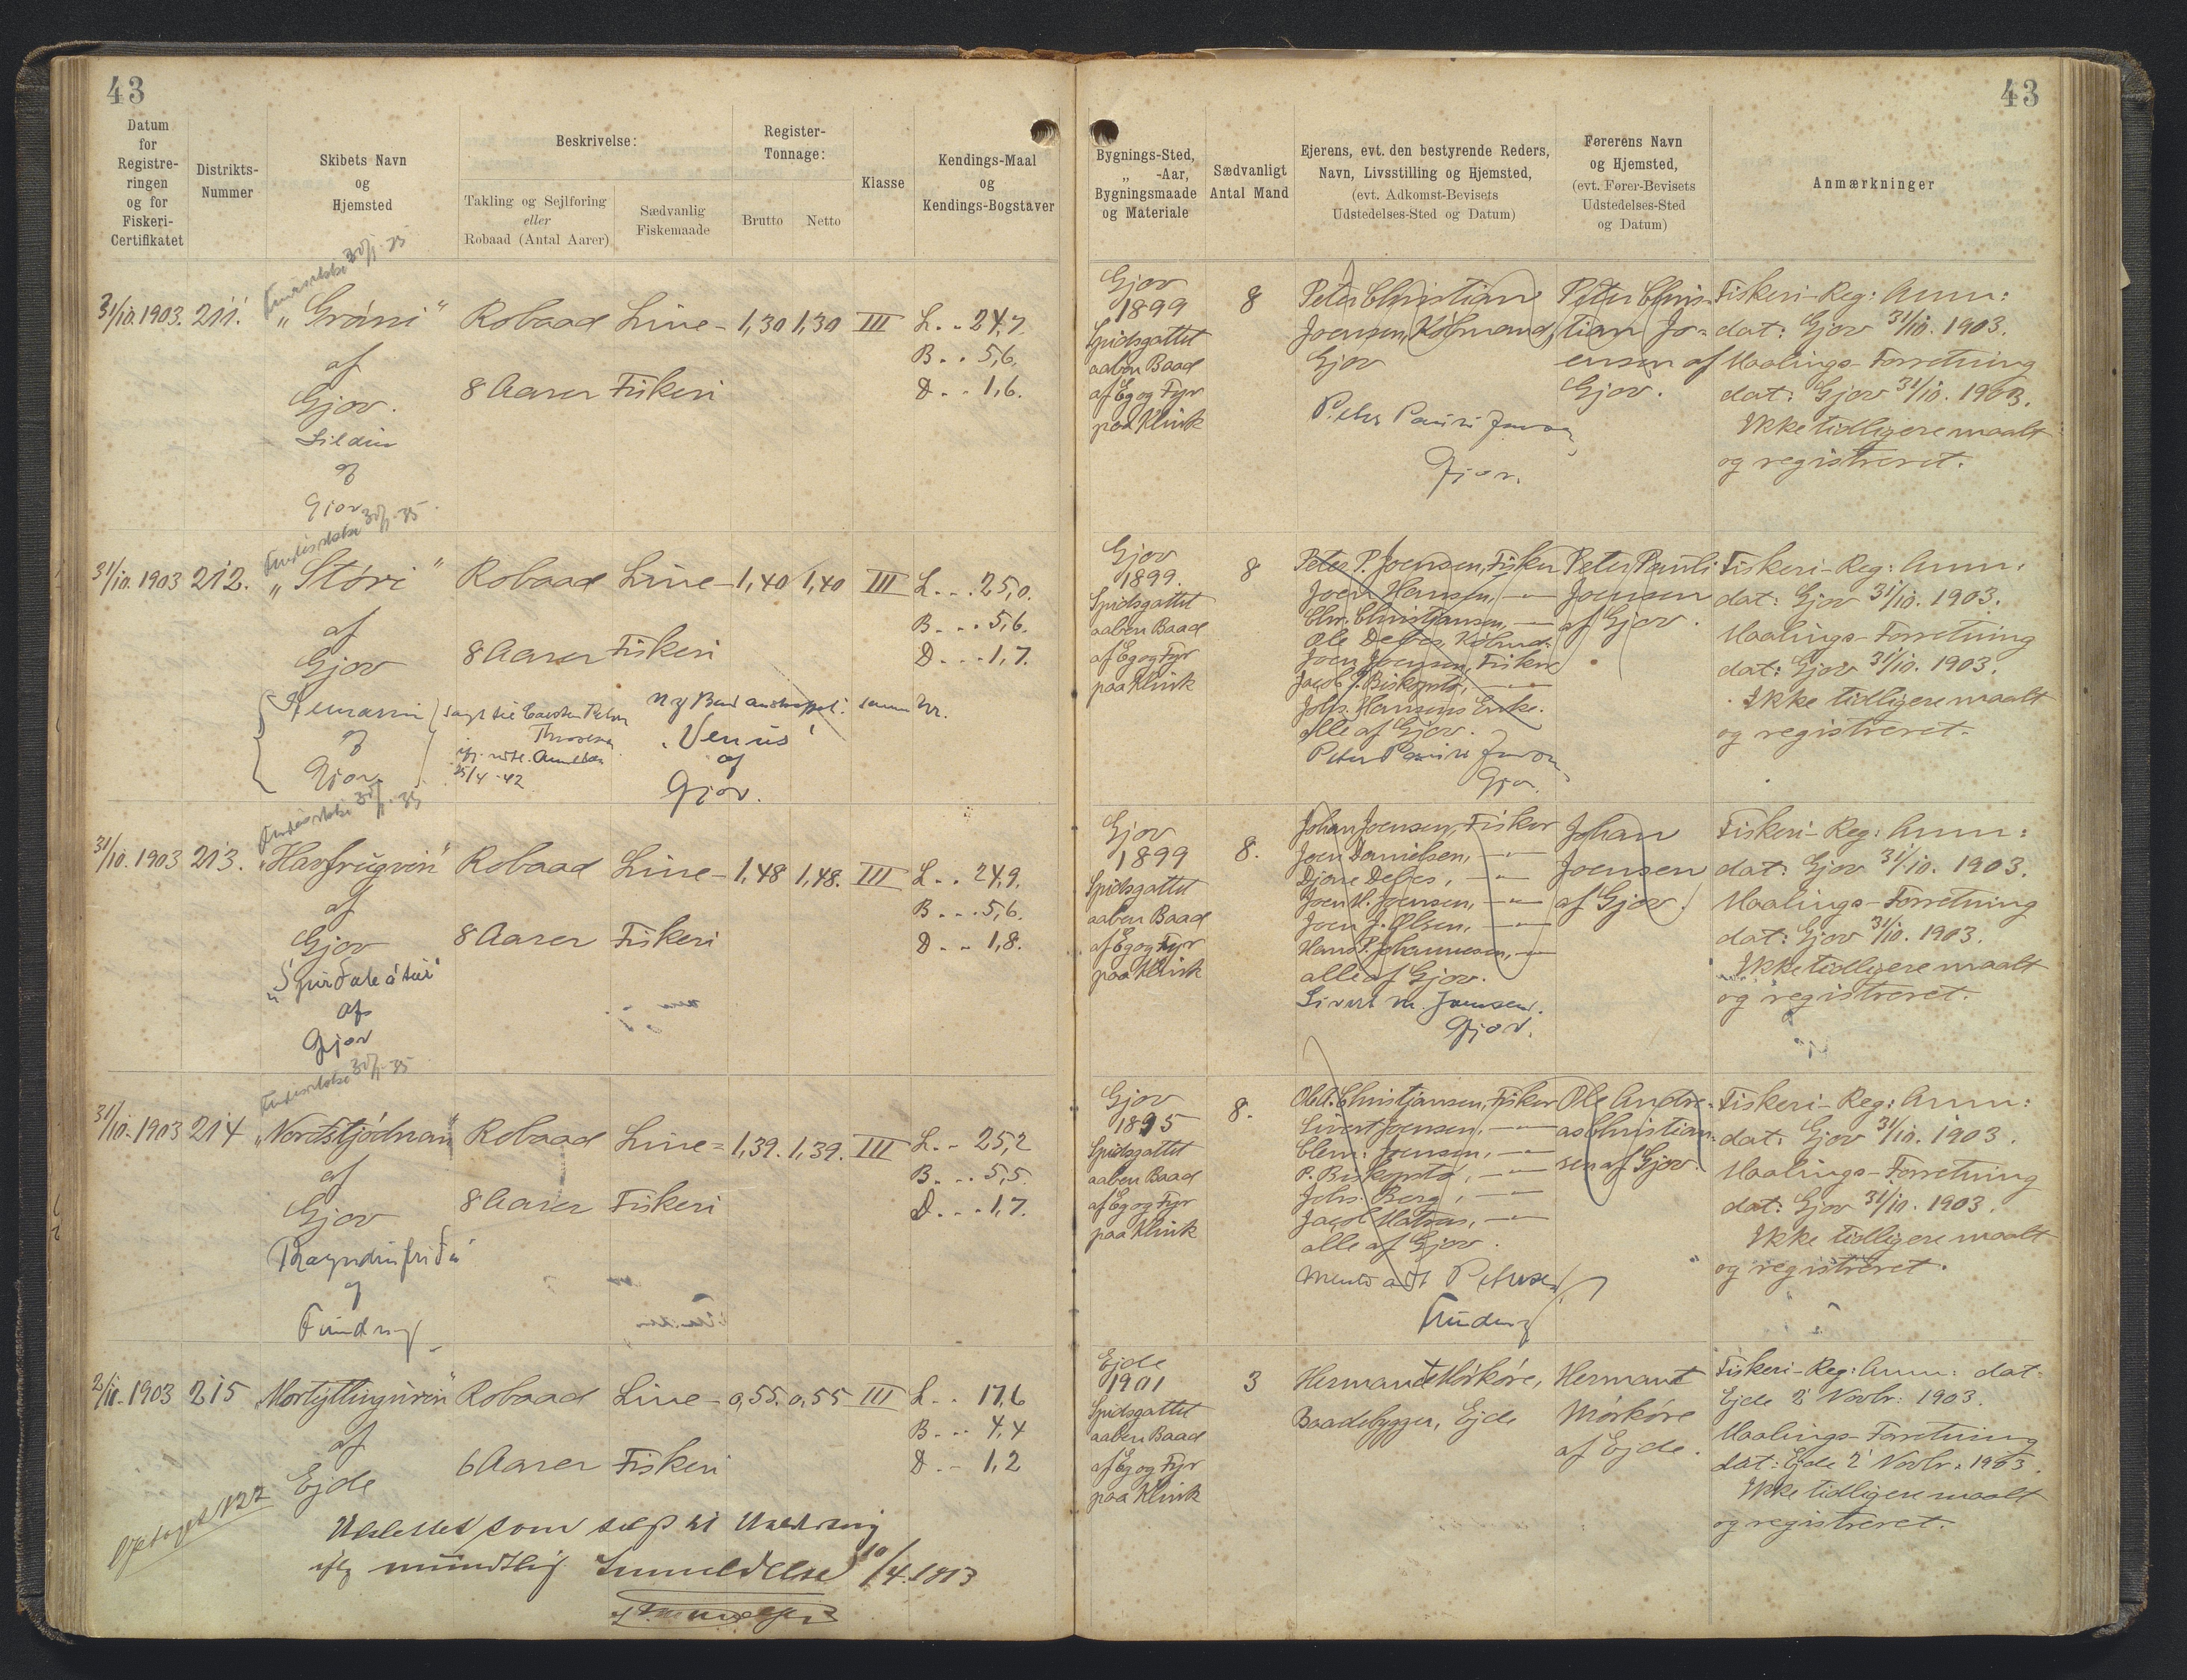 43
43
Datum
for
Registre-
ringen
og for
Fiskeri-
Certifikatet
Distrikts-
Nummer
Skibets Navn
og
Hjemsted
Beskrivelse:
Takling og Sejlføring
eller
Robaad (Antal Aarer)
Sædvanlig
Fiskemaade
Register-
Tonnage:
Brutto Netto
Klasse
Kendings-Maal
og
Kendings-Bogstaver
Bygnings-Sted,
„ -Aar,
Bygningsmaade
og Materiale
Sædvanligt
Antal Mand
Ejerens, evt. den bestyrende Reders,
Navn, Livsstilling og Hjemsted,
(evt. Adkomst-Bevisets
Udstedelses-Sted og Datum)
Førerens Navn
og Hjemsted,
(evt. Fører-Bevisets
Udstedelses-Sted
og Datum)
Anmærkninger
31/10. 1903. 211. „Gráni“ Robaad Line- 1,30 1,30 III L. . 24,7.
af
Gjov.
8 Aarer Fiskeri
B. . 5,6.
D. . 1,6.
Sildin
af
Gjov
Gjov
1899
Spidsgattet
aaben Baad
af Eg og Fyr
paa Klink
8
Peter Christian
Joensen, Købmand,
Gjov
Peter Pauli Joensen,
Gjov.
Peter Chris-
tian Jo-
ensen af
Gjov.
Fiskeri-Reg: Anm:
dat: Gjov 31/10. 1903.
Maalings-Forretning
dat: Gjov 31/10. 1903.
Ikke tidligere maalt
og registreret.
31/10. 1903 212. „Stóri“ Robaad Line- 1,40 1,40 III L. . . 25,0.
af
Gjov
8 Aarer Fiskeri
B. . . 5,6.
D. . . 1,7.
af
Gjov
25/4-42
„Venus“
af
Gjov.
Gjov
1899.
Spidsgattet
aaben Baad
af Eg og Fyr
paa Klink
8
Peter P. Joensen, Fisker
Joen Hansen, —„—
Chr. Christjansen, —„—
Ole Debes, Købmd.
Joen Joensen, Fisker
Jacob J. Biskopstø, —„—
Johs. Hansens Enke.
alle af Gjov.
Peter Pauli Joensen,
Gjov.
Peter Pauli
Joensen
af Gjov.
Fiskeri-Reg: Anm:
dat: Gjov 31/10. 1903.
Maalings-Forretning
dat: Gjov 31/10. 1903.
Ikke tidligere maalt
og registreret.
31/10. 1903 213. „Havfrúgvin“ Robaad Line- 1,48 1,48. III L. . 24,9.
af
Gjov
8 Aarer Fiskeri
B. . . 5,6.
D. . 1,8.
af
Gjov
Gjov
1899
Spidsgattet
aaben Baad
af Eg og Fyr
paa Klink
8.
Johan Joensen, Fisker
Joen Danielsen, —„—
Djone Debes, —„—
Joen H. Joensen, —„—
Joen J. Olsen, —„—
Hans P. Johannesen, —„—
alle af Gjov.
Sivert M. Joensen.
Gjov.
Johan
Joensen
af Gjov.
Fiskeri-Reg: Anm:
dat: Gjov 31/10. 1903.
Maalings-Forretning
dat: Gjov 31/10. 1903.
Ikke tidligere maalt
og registreret.
31/10. 1903 214 „Norðstjódnan“ Robaad Line- 1,39. 1,39. III L. . 25,2
af
Gjov
8 Aarer Fiskeri
B. . . 5,5.
D. . . 1,7.
af
Funding
Gjov
1895
Spidsgattet
aaben Baad
af Eg og Fyr
paa Klink
8.
Ole A. Christjansen, Fisker
Sivert Joensen, —„—
Clem: Joensen, —„—
P. Biskopstø, —„—
Johs. Berg, —„—
Jacob Matras, —„—
alle af Gjov.
Petersen
Funding
Ole Andre-
as Christian-
sen af Gjov.
Fiskeri-Reg: Anm:
dat: Gjov 31/10. 1903.
Maalings-Forretning
dat: Gjov 31/10. 1903.
Ikke tidligere maalt
og registreret.
2/11. 1903 215 Robaad Line- 0,55. 0,55 III L. . 17,6
af
Ejde
6 Aarer Fiskeri
B. . . 4,4
D. . 1,2
Udslettet som solgt til
iflg mundtlig Anmeldelse 10/4. 1913
Ejde
1901
Spidsgattet
aaben Baad
af Eg og Fyr
paa Klink
3
Hermant Mórkóre,
Baadebygger, Ejde
Hermant
Mórkóre
af Ejde.
Fiskeri-Reg: Anm: dat:
Ejde 2' Novbr: 1903.
Maalings-Forretning
dat: Ejde 2' Novbr: 1903.
Ikke tidligere maalt
og registreret.